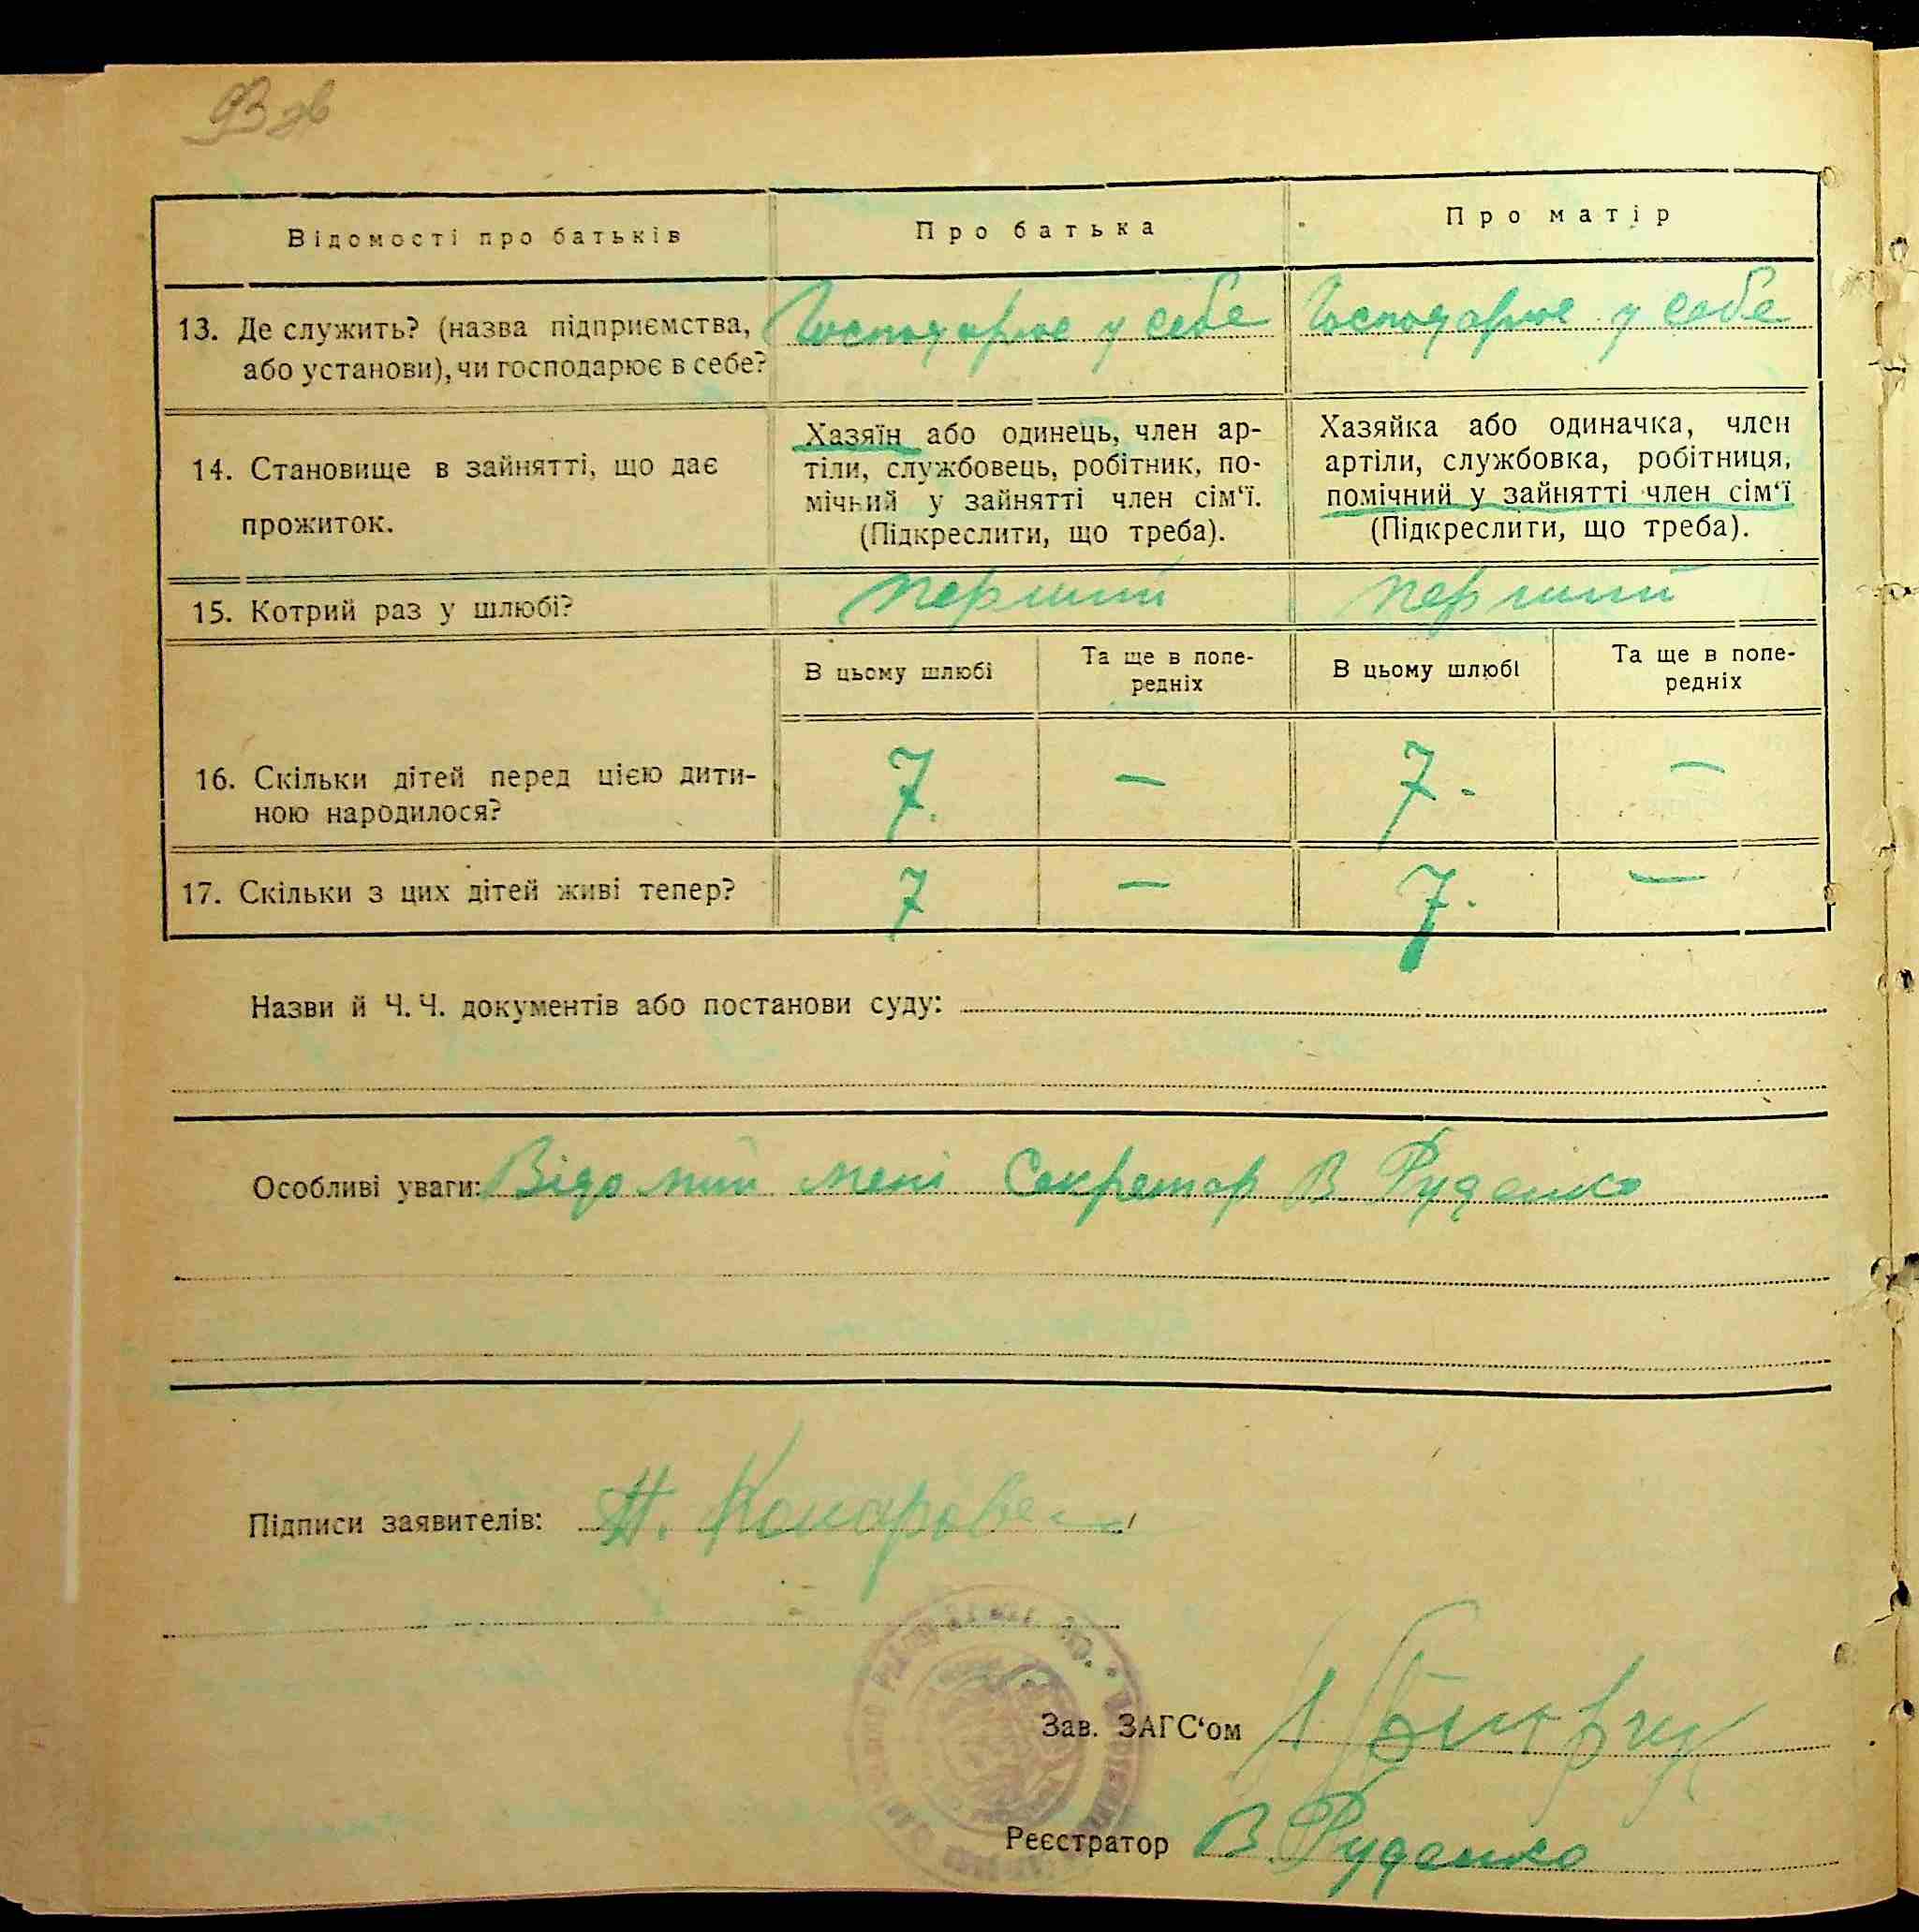 93 зв
Відомості про батьків
Про батька
Про матір
13. Де служить? (назва підприємства,
або установи), чи господарює в себе?
Господарює у себе
Господарює у себе
14. Становище в зайнятті, що дає
прожиток.
Хазяїн або одинець, член ар-
тіли, службовець, робітник, по-
мічний у зайнятті член сім‘ї.
(Підкреслити, що треба).
Хазяйка або одиначка, член
артіли, службовка, робітниця,
помічний у зайнятті член сім‘ї
(Підкреслити, що треба).
15. Котрий раз у шлюбі?
перший
перший
В цьому шлюбі
Та ще в попе-
редніх
В цьому шлюбі
Та ще в попе-
редніх
16. Скільки дітей перед цією дити-
ною народилося?
7.
—
7.
—
17. Скільки з цих дітей живі тепер?
7
—
7.
—
Назви й Ч. Ч. документів або постанови суду:
Особливі уваги: Відомий мені Секретар В Руденко
Підписи заявителів:
Зав. ЗАГС‘ом
Реєстратор В. Руденко